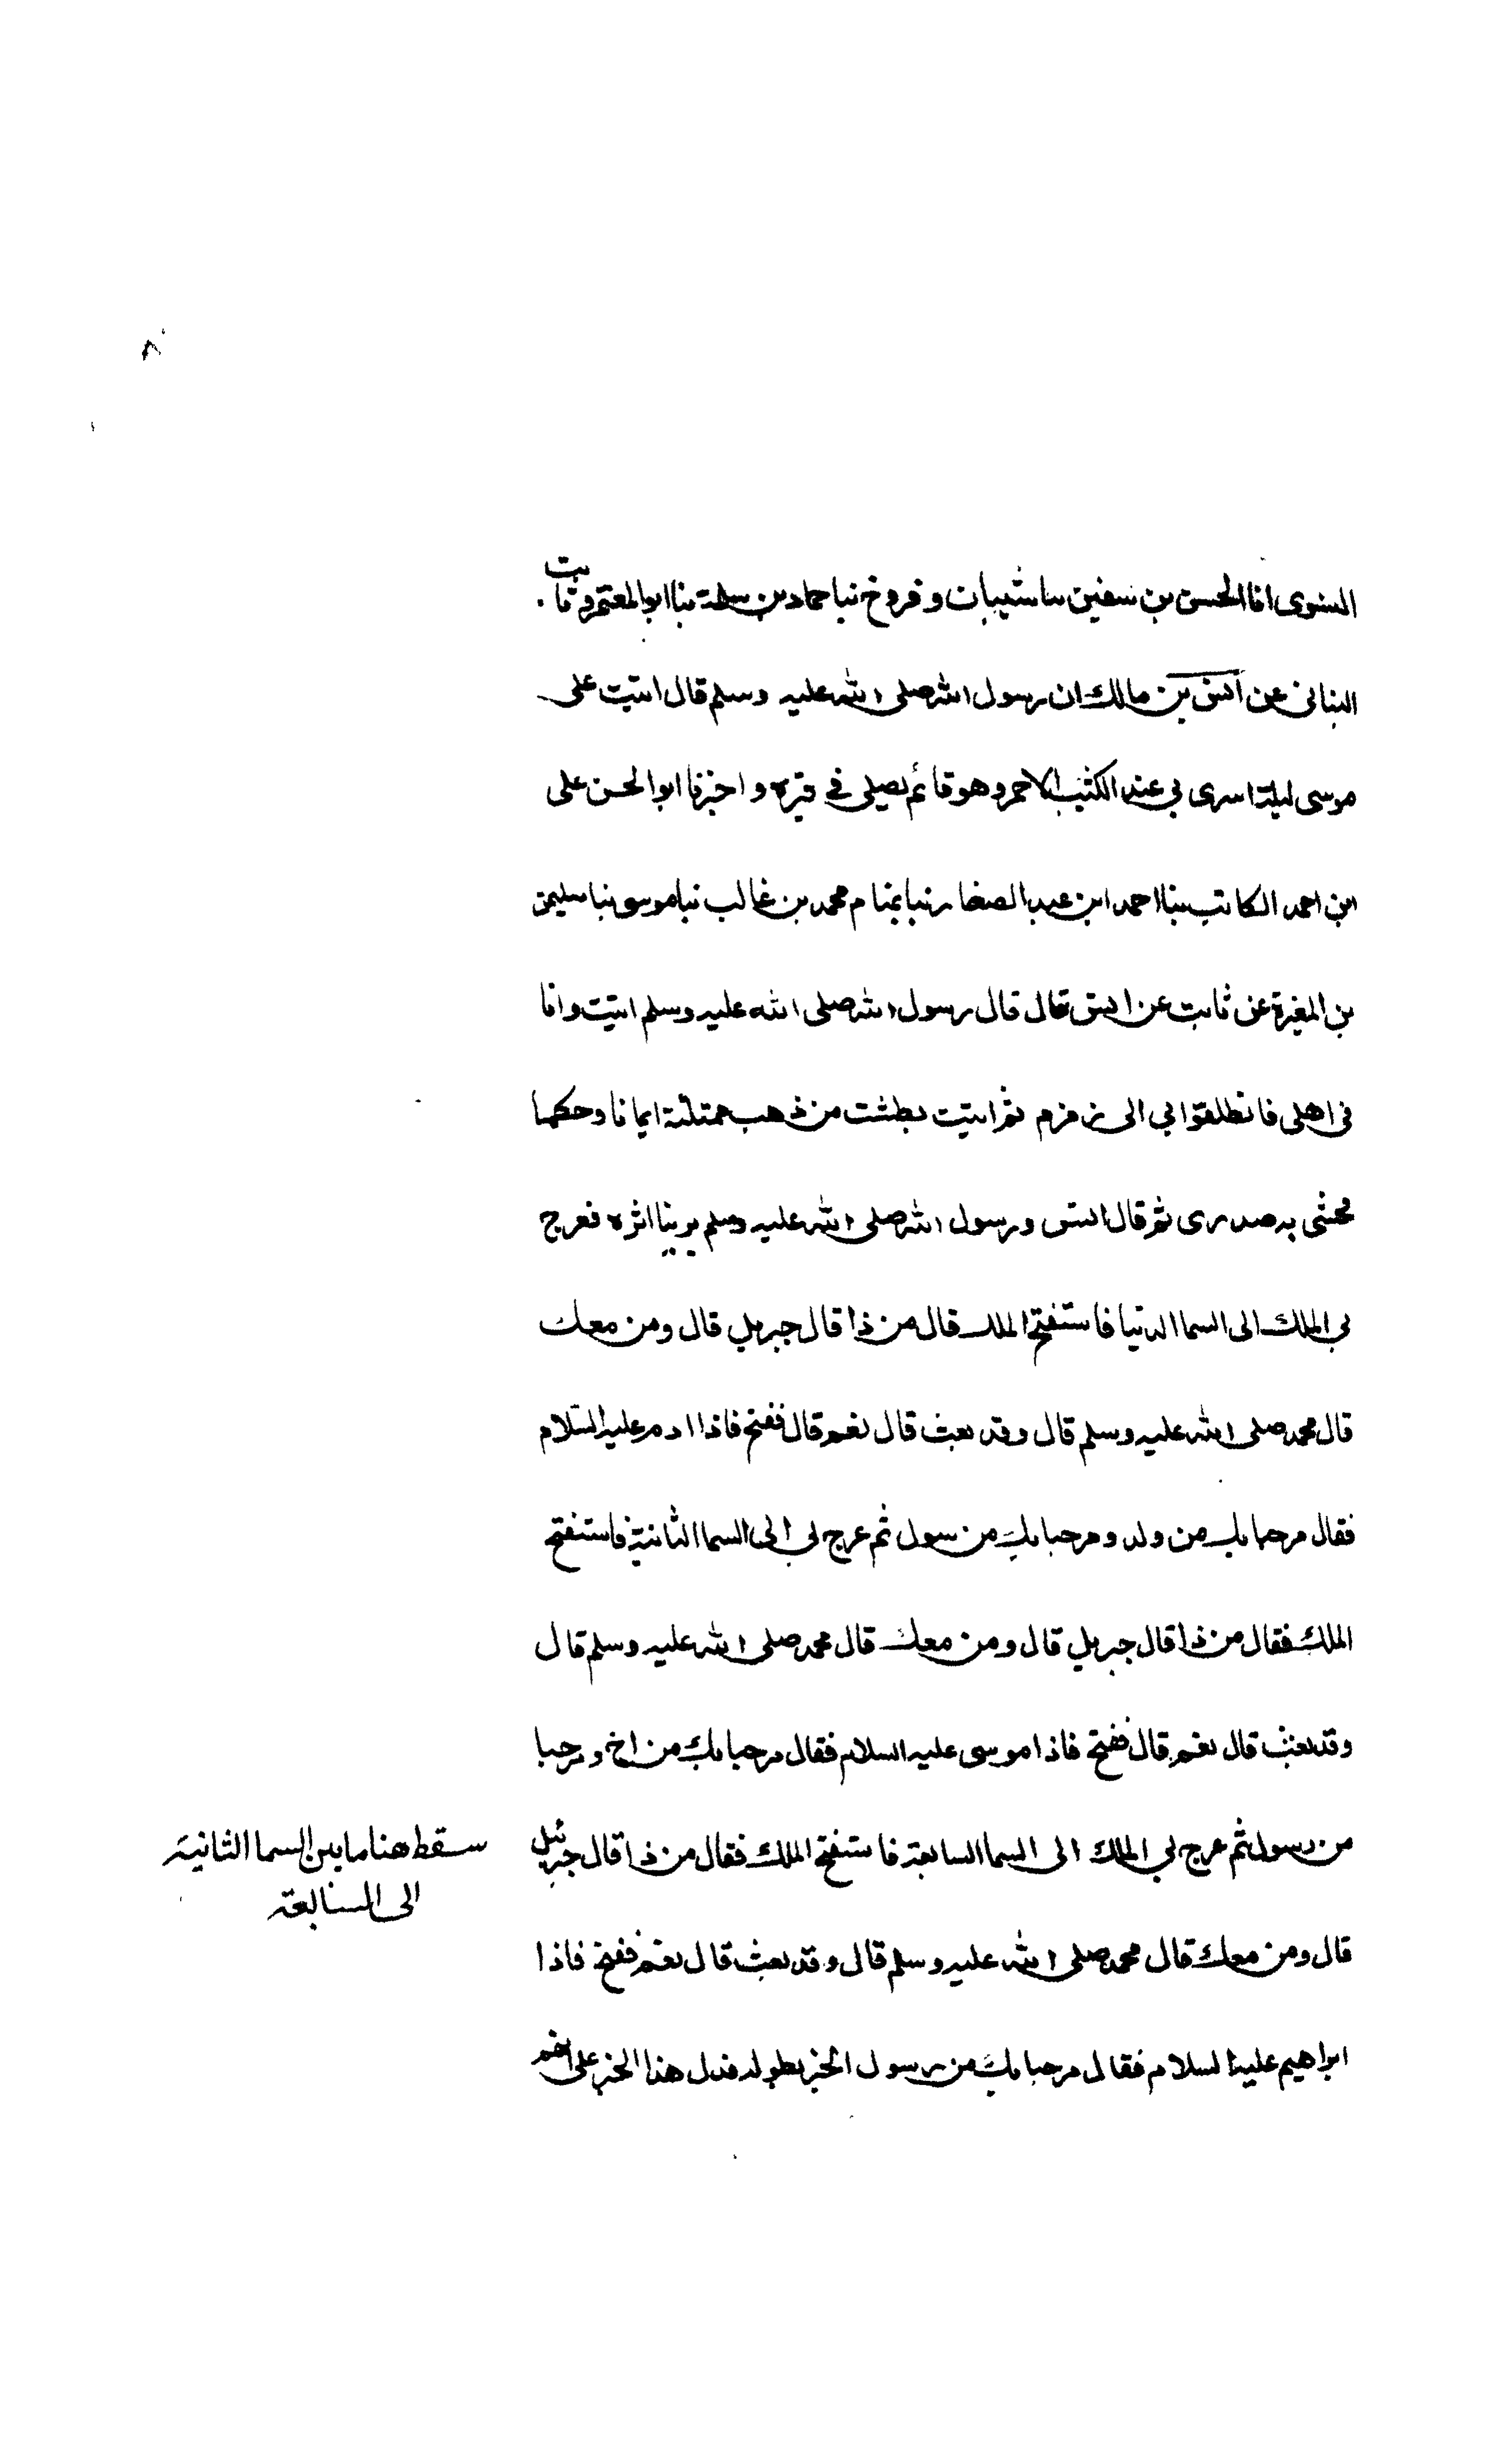 ٨
النسوى انا الحسن بن سفين سا شيبان و فروخ نبا حماد بن سلمة نبا ابو المعتمر و ثابت
البنانى عن انس بن مالك ان رسول الله صلى الله عليه وسلم قال اتيت على
موسى ليلة اسرى بى عند الكثيب الاحمر وهو قائم يصلى فى قبره و اخبرنا ابو الحسن على
ابن احمد الكاتب نبا احمد ابن عبد الصفار نبا تمتام محمد بن غالب نبا موسى نبا سليمن
بن المغيرة عن ثابت عن انس قال قال رسول الله صلى الله عليه وسلم اتيت وانا
فى اهلى فانطلقوا بى الى زمزم ثم اتيت بطشت من ذهب ممتلئة ايمانا وحكما
فحشى به صدرى ثم قال انس ورسول الله صلى الله عليه وسلم يرينا اثره فعرج
بى الملك الى السما الدنيا فاستفتح الملك قال من ذا قال جبريل قال ومن معك
قال محمد صلى الله عليه وسلم قال وقد بعث قال نعم قال ففتح فاذا ادم عليه السلام
فقال مرحبا بك من ولد ومرحبا بك من رسول ثم عرج بى الى السما الثانية فاستفتح
الملك فقال من ذا قال جبريل قال ومن معك قال محمد صلى الله عليه وسلم قال
وقد بعث قال نعم قال ففتح فاذا موسى عليه السلام فقال مرحبا بك من اخ ومرحبا
من رسول ثم عرج بى الملك الى السما السابعة فاستفتح الملك فقال من ذا قال جبرئيل
سقط هنا ما بين السما الثانية
الى السابعة
قال ومن معك قال محمد صلى الله عليه وسلم قال وقد بعث قال نعم ففتح فاذا
ابراهيم عليه السلام فقال مرحبا بك من رسول الخبر بطوله فدل هذا الخبر على انهم